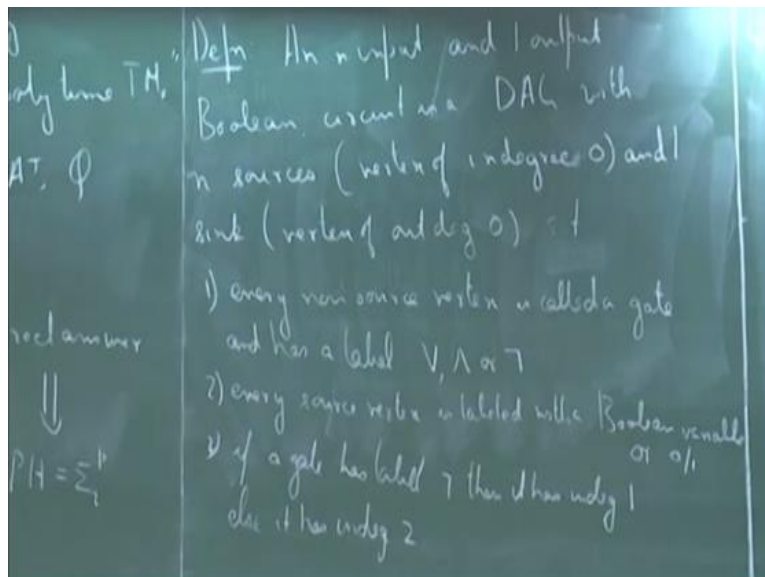 oly time TM.
AT, φ
⇓
PH = Σ₁ᵖ
Defn: An n input and 1 output
Boolean circuit is a DAG with
n sources (vertex of indegree 0) and 1
sink (vertex of out deg 0) s.t
1) every non source vertex is called a gate
and has a label ∨, ∧ or ¬
2) every source vertex is labeled with a Boolean variable
or 0/1
3) if a gate has label ¬ then it has indeg 1
else it has indeg 2